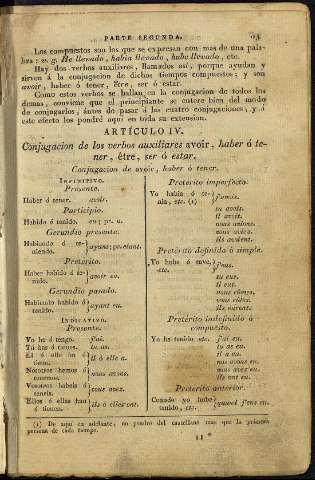 PARTE SEGUNDA.
Los compuestos son los que se expresan con mas de una pala-
bra: v. g. He llevado, habia llevado, hube llevado, etc.
Hay dos verbos auxiliares, llamados así, porque ayudan y
sirven á la conjugacion de dichos tiempos compuestos; y son
avoir, haber ó tener, être, ser ó estar.
Como estos verbos se hallan en la conjugacion de todos los
demas, conviene que el principiante se entere bien del modo
de conjugarlos, ántes de pasar á las cuatro conjugaciones, y á
este efecto los pondré aquí en toda su extension.
ARTÍCULO IV.
Conjugacion de los verbos auxiliares avoir, haber ó te-
ner, être, ser ó estar.
Conjugacion de avoir, haber ó tener.
INFINITIVO.
Presente.
Haber ó tener. avoir.
Participio.
Habido ó tenido. eu; pr. u.
Gerundio presente.
Habiendo ó te-
niendo. ayant; pr. eiant.
Pretérito.
Haber habido ó te-
nido. avoir eu.
Gerundio pasado.
Habiendo habido ó
tenido. ayant eu.
INDICATIVO.
Presente.
Yo he ó tengo. j'ai.
Tú has ó tienes. tu as.
Él ó ella ha ó
tiene. il ó elle a.
Nosotros hemos ó
tenemos. nous avons.
Vosotros habeis ó
teneis. vous avez.
Ellos ó ellas han
ó tienen. ils ó elles ont.
Pretérito imperfecto.
Yo habia ó te-
nia, etc. (1) j'avois.
tu avois.
il avoit.
nous avions.
vous aviez.
ils avoient.
Pretérito definido ó simple.
Yo hube ó tuve,
etc. j'eus.
tu eus.
il eut.
nous eûmes.
vous eûtes.
ils eurent.
Pretérito indefinido ó
compuesto.
Yo he tenido etc. j'ai eu.
tu as eu.
il a eu.
nous avons eu.
vous avez eu.
ils ont eu.
Pretérito anterior.
Cuando yo hube
tenido, etc. quand j'eus eu.
(1) De aquí en adelante, no pondré del castellano mas que la primera
persona de cada tiempo.
11 *